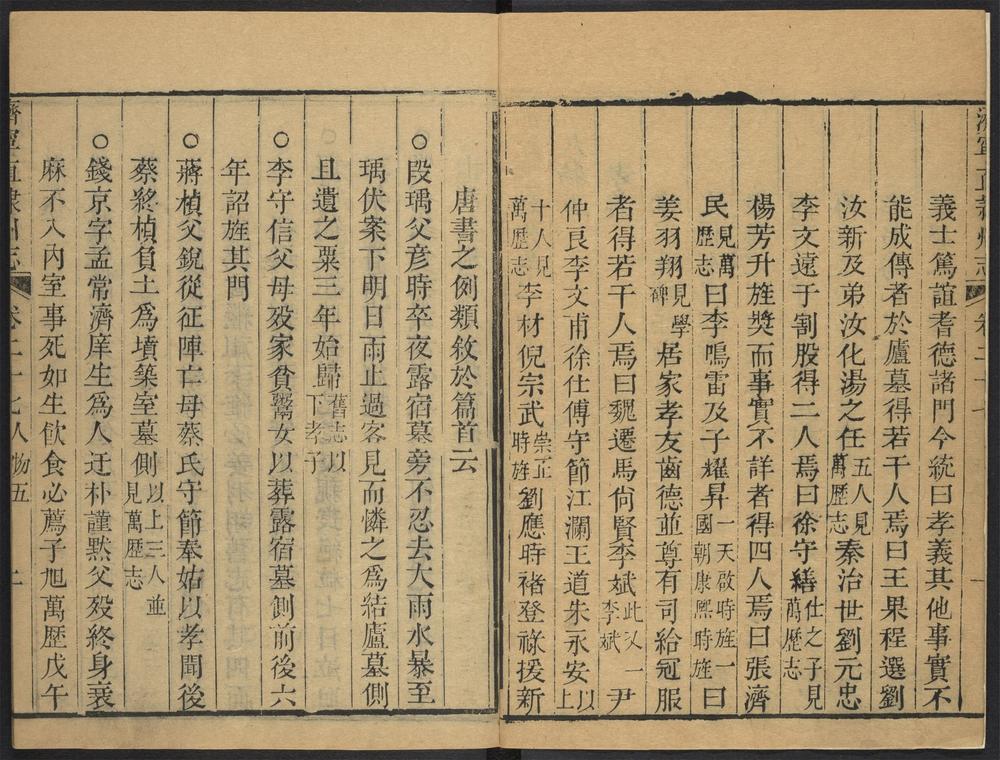 濟寧直隸州志 卷二十七
義士篤誼耆德諸門今統曰孝義其他事實不
能成傳者於廬墓得若干人焉曰王果程選劉
汝新及弟汝化湯之任五人見萬歷志秦治世劉元忠
李文遠于割股得二人焉曰徐守繕仕之子見萬歷志
楊芳升旌奬而事實不詳者得四人焉曰張濟
民見萬歷志曰李鳴雷及子耀昇一天啟時旌一國朝康熙時旌曰
姜羽翔見學碑居家孝友齒德並尊有司給冠服
者得若干人焉曰魏遷馬尙賢李斌此又一李斌尹
仲良李文甫徐仕傅守節江瀾王道朱永安以上
十人見萬歷志李材倪宗武崇正時旌劉應時褚登祿援新
唐書之例類敘於篇首云
○段瑀父彥時卒夜露宿墓旁不忍去大雨水暴至
瑀伏案下明日雨止過客見而憐之爲結廬墓側
且遺之粟三年始歸舊志以下孝子
○李守信父母歿家貧鬻女以葬露宿墓側前後六
年詔旌其門
○蔣楨父銳從征陣亡母蔡氏守節奉姑以孝聞後
蔡終楨負土爲墳築室墓側以上三人並見萬歷志
○錢京字孟常濟庠生爲人迂朴謹默父歿終身衰
麻不入內室事死如生飮食必薦子旭萬歷戊午
濟寧直隸州志 卷二十七人物五 二